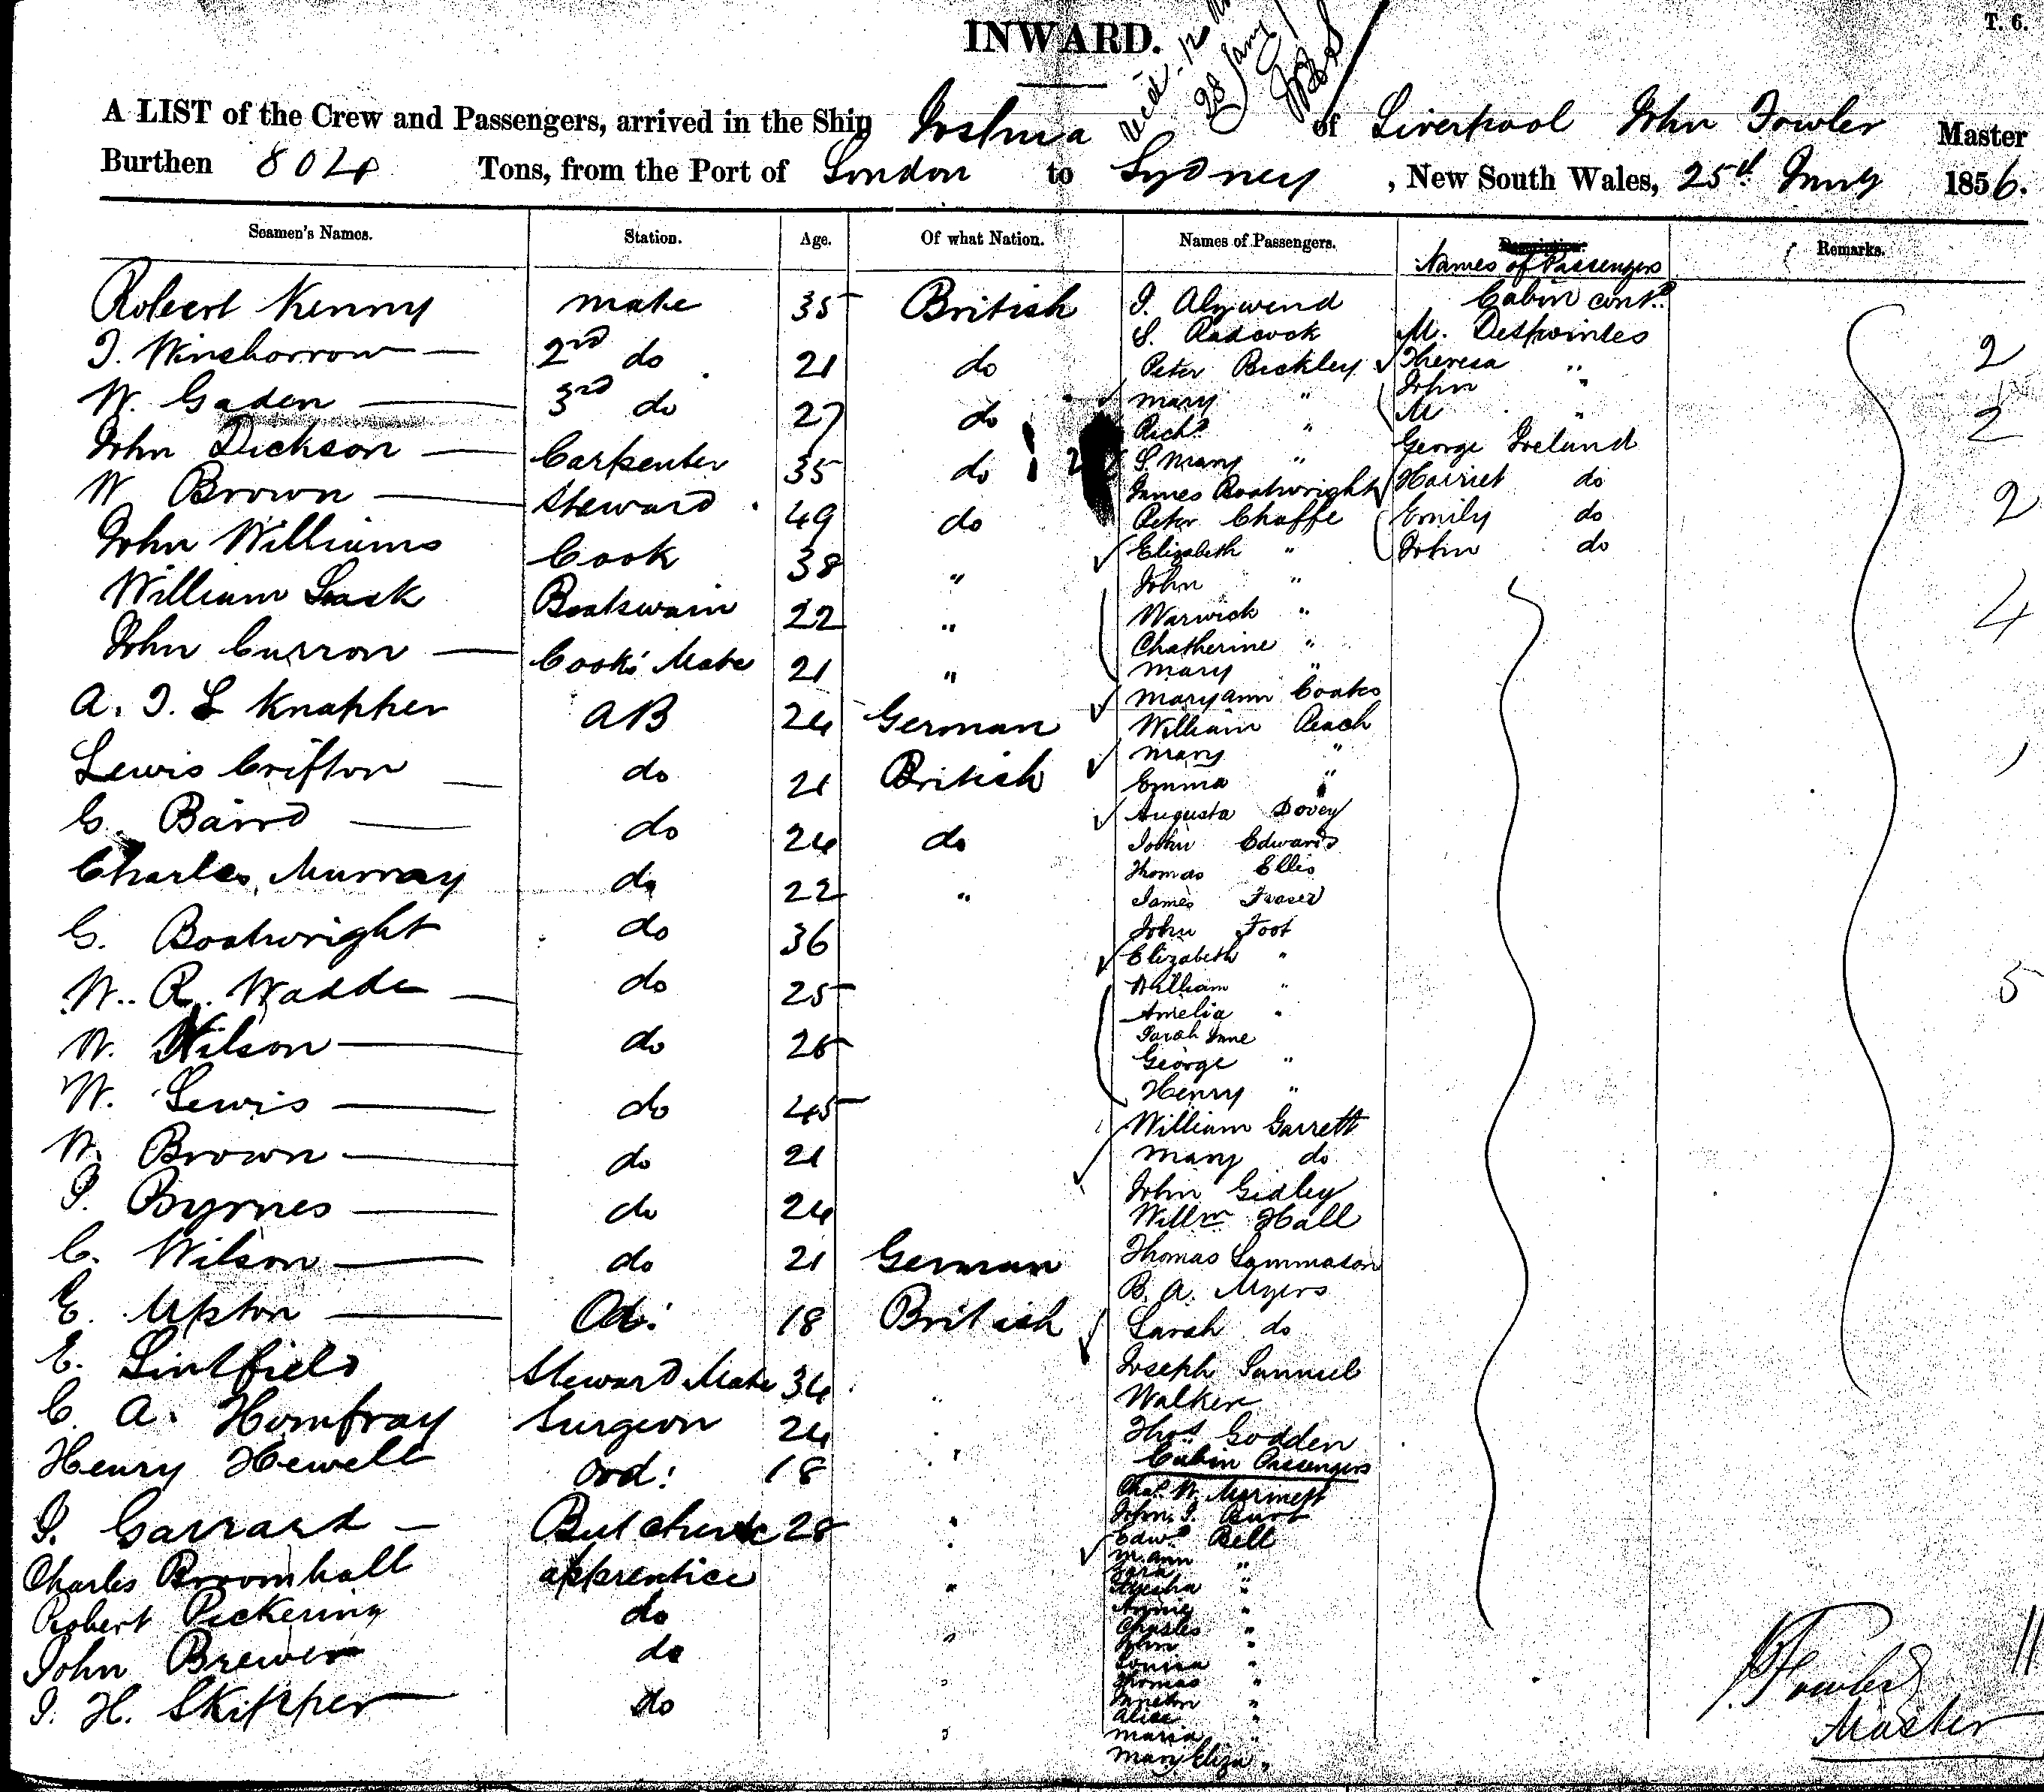 T. 6.
INWARD.
28 Jany
A LIST of the Crew and Passengers, arrived in the Ship Joshua of Liverpool John Fowler Master
Burthen 804 Tons, from the Port of London to Sydney, New South Wales, 25th Jany 1856.
Seamen's Names. Station. Age. Of what Nation. Names of Passengers. Names of Passengers Remarks.
Robert Kenny mate 35 British
J. Winsborrow 2nd do 21 do
W. Gaden 3rd do 27 do
John Dickson Carpenter 35 do
W Brown Steward 49 do
John Williams Cook 38 "
William Leask Boatswain 22 "
John Curron Cooks Mate 21 "
A. J. L Knapper AB 24 German
Lewis Crifton do 21 British
G. Baird do 24 do
Charles Murray do 22 "
G. Boatwright do 36
W. R. Wadde do 25
W. Wilson do 26
W. Lewis do 45
W. Brown do 21
P. Byrnes do 24
C. Wilson do 21 German
E. Upton Od: 18 British
E. Lintfield Steward Mate 34
C. A. Homfray Surgeon 24
Henry Hewell Ord: 18
J. Garrard Butcher 28
Charles Broomhall apprentice
Robert Pickering do "
John Brewer do "
J. H. Skipper do
J. Alywend
S. Padcock
Peter Bickley
Mary "
Richd "
S. Mary "
James Boatwright
Peter Chaffe
Elizabeth "
John "
Warwick "
Chatherine "
Mary "
Maryann Coaks
William Peach
Mary "
Emma "
Augusta Dovey
John Edwards
Thomas Ellis
James Fraser
John Foot
Elizabeth "
William "
Amelia "
Sarah Jane
George "
Henry "
William Garrett
Mary do
John Gidley
Willm Hall
Thomas Lammason
B. A. Myers
Sarah do
Joseph Samuel
Walker
Thos Godden
Cabin Passengers
Chas. W.
John J. Burt
Edwd Bell
M. ann
Zara "
Ayesha "
Annie "
Charles "
John "
Louisa "
Thomas "
"
Alice "
Maria "
Mary Eliza "
Cabin contd.
M. Despointes
Theresa "
John "
M "
George Ireland
Harriet do
Emily do
John do
2
2
2
4
1
5
11
J Fowler
Master